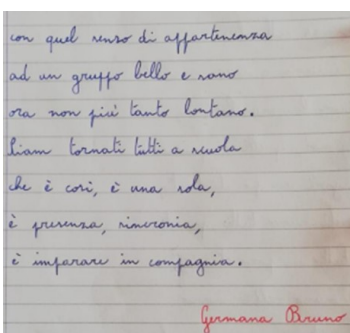 con quel senso di appartenenza
ad un gruppo bello e sano
ora non più tanto lontano.
Siam tornati tutti a scuola
che è così, è una sola,
è presenza, sincronia,
è imparare in compagnia.
Germana Bruno